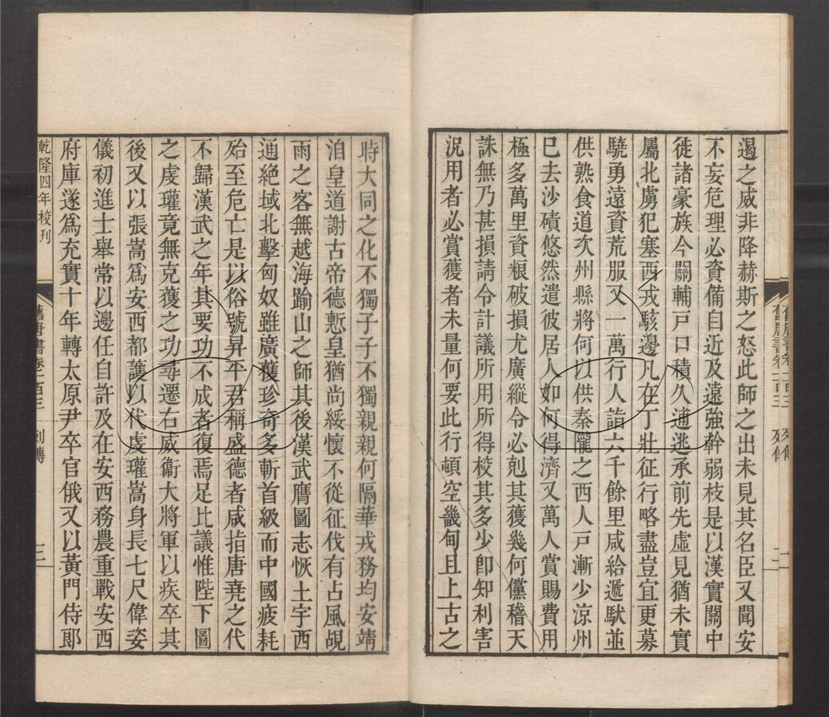 遏之威非降赫斯之怒此師之出未見其名臣又聞安
不妄危理必資備自近及遠強幹弱枝是以漢實關中
徙諸豪族今關輔戸口積久逋逃承前先虛見猶未實
屬北虜犯塞西戎駭邊凡在丁壯征行略盡豈宜更募
驍勇遠資荒服又一萬行人詣六千餘里咸給遞馱並
供熟食道次州縣將何以供秦隴之西人戸漸少涼州
已去沙磧悠然遣彼居人如何得濟又萬人賞賜費用
極多萬里資糧破損尤廣縱令必剋其獲幾何儻稽天
誅無乃甚損請令計議所用所得校其多少卽知利害
況用者必賞獲者未量何要此行頓空畿甸且上古之
舊唐書卷一百三 列傳 二
時大同之化不獨子子不獨親親何隔華戎務均安靖
洎皇道謝古帝德慙皇猶尚綏懷不從征伐有占風覘
雨之客無越海踰山之師其後漢武膺圖志恢土宇西
通絶域北擊匈奴雖廣獲珍奇多斬首級而中國疲耗
殆至危亡是以俗號昇平君稱盛德者咸指唐堯之代
不歸漢武之年其要功不成者復焉足比議惟陛下圖
之虔瓘竟無克獲之功尋遷右威衞大將軍以疾卒其
後又以張嵩爲安西都護以代虔瓘嵩身長七尺偉姿
儀初進士舉常以邊任自許及在安西務農重戰安西
府庫遂爲充實十年轉太原尹卒官俄又以黃門侍郞
乾隆四年校刊
舊唐書卷一百三 列傳